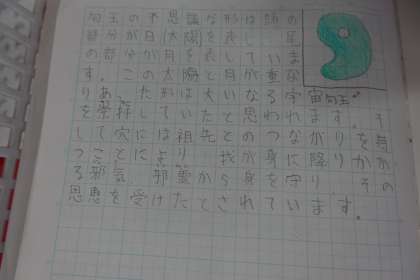 勾玉の不思議な形は頭の
部分が日(太陽)を表し、尾
の部分が月を表していま
す。この太陽と月が重な
りあった形は大いなる宇宙
勾玉
を崇拝していたと思われます。そ
して穴には祖先とのつながりを持
つことにより、我が身に降りかか
る邪気、邪霊から身を守り、その
恩恵を受けたとされています。